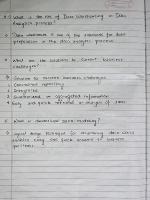 What is the role of Data Warehousing in Data
Analysis process?
Data warehouse is one of the for data
preparation in the data analysis process.
What are the solutions to current business
challenges?
Solution to current business challenges
1 reporting
2 Integrated
3 Summarized or aggregated information
4 Easy and quick retrieval or changes of data.
What is dimensional data modeling?
logical design technique for structuring data which
enables easy and quick access of business
questions.